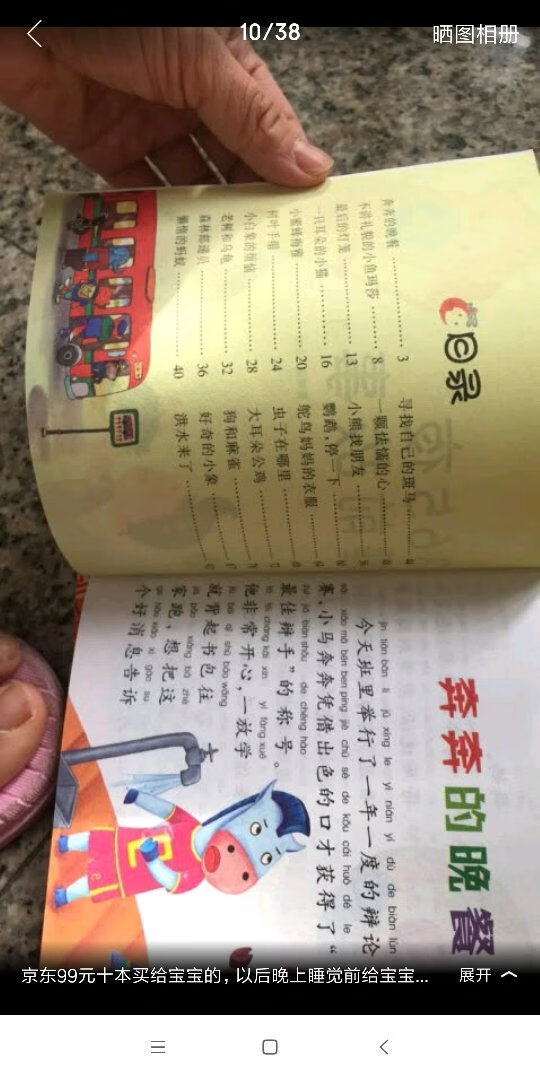 10/38
晒图相册
目录
奔奔的晚餐 3
不讲礼貌的小鱼玛莎 8
最后的灯笼 13
一只耳朵的小猫 16
小蜜蜂梅雅 20
树叶手绢 24
小白象的烦恼 28
老树和乌龟 32
森林邮递员 36
懒惰的蚂蚁 40
寻找自己的斑马
一颗怯懦的心
小熊找朋友
鹦鹉,停一下
鸵鸟妈妈的衣服
虫子在哪里
大耳朵公鸡
狗和麻雀
好奇的小象
洪水来了
奔奔的晚餐
jīn tiān bān lǐ jǔ xíng le yì nián yí dù de biàn lùn
今天班里举行了一年一度的辩论
sài xiǎo mǎ bēn bēn píng jiè chū sè de kǒu cái huò dé le
赛,小马奔奔凭借出色的口才获得了“
zuì jiā biàn shǒu de chēng hào
最佳辩手”的称号。
tā fēi cháng kāi xīn yí fàng xué
他非常开心,一放学
jiù bēi qǐ shū bāo wǎng
就背起书包往
jiā pǎo xiǎng bǎ zhè
家跑,想把这
gè hǎo xiāo xi gào su
个好消息告诉
京东99元十本买给宝宝的，以后晚上睡觉前给宝宝...
展开